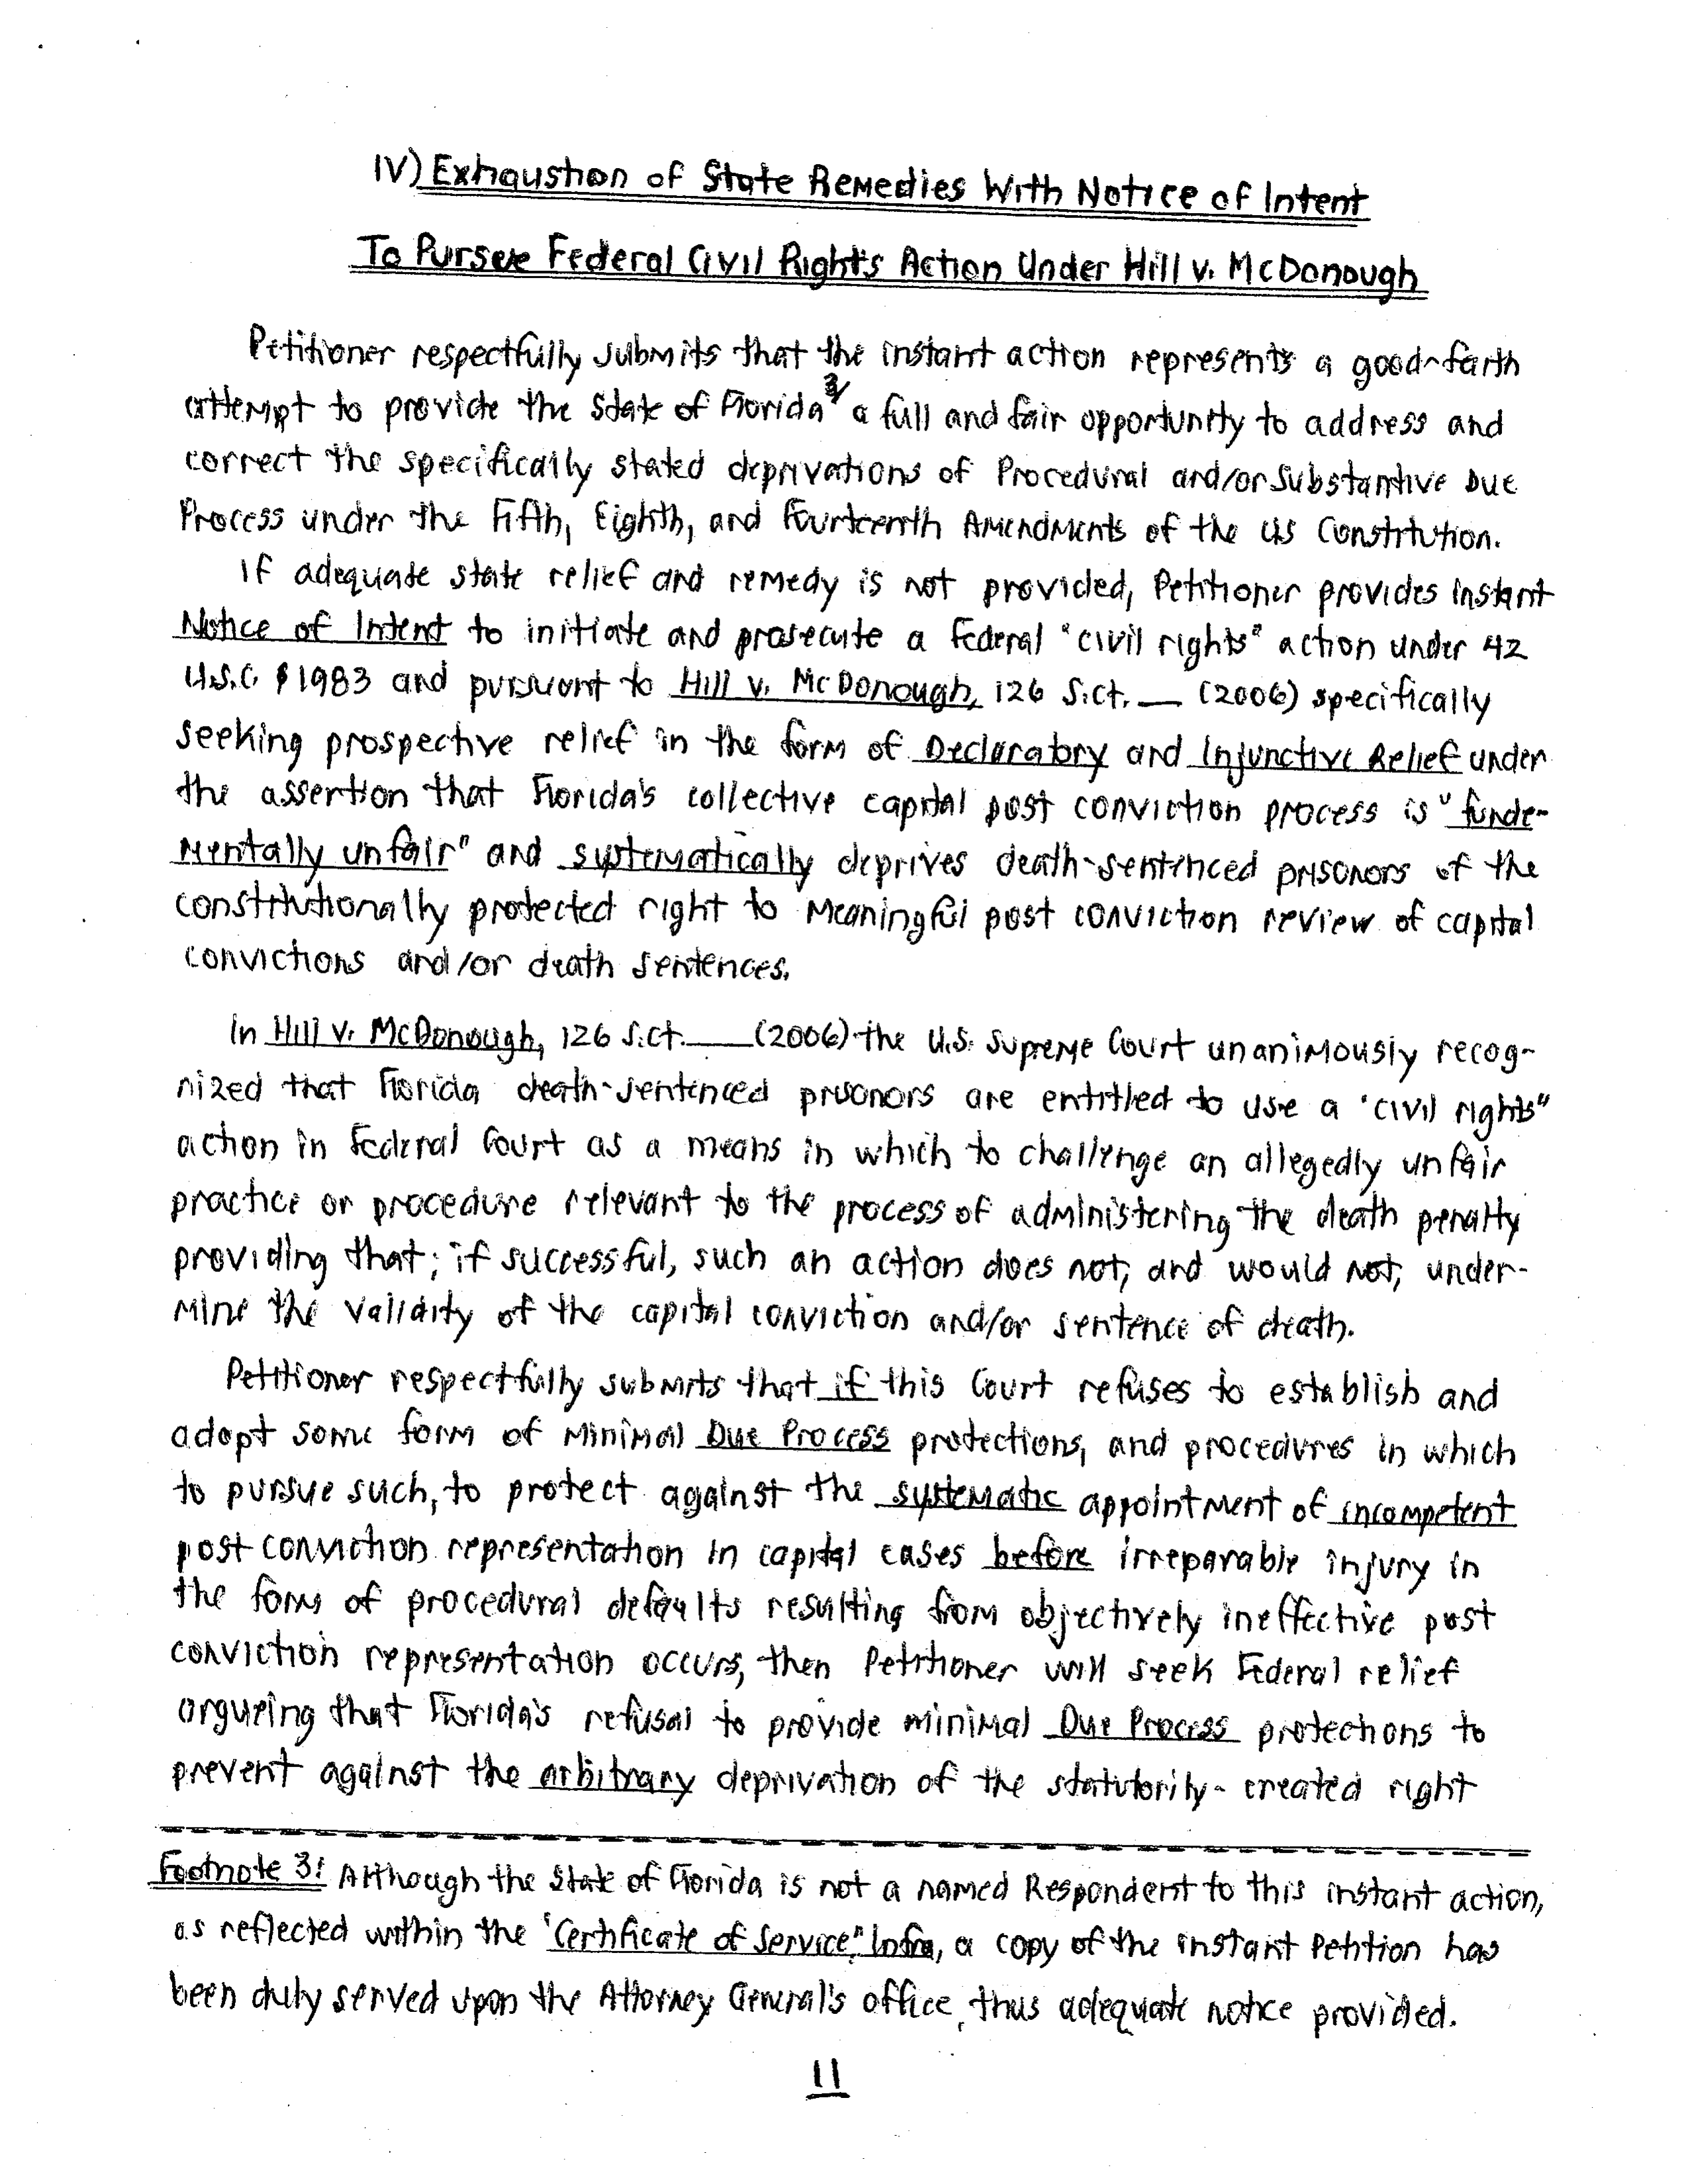 IV) Exhaustion of State Remedies With Notice of Intent
To Pursue Federal Civil Rights Action Under Hill v. McDonough
Petitioner respectfully submits that the instant action represents a good-faith
attempt to provide the State of Florida 3/ a full and fair opportunity to address and
correct the specifically stated deprivations of Procedural and/or Substantive Due
Process under the Fifth, Eighth, and Fourteenth Amendments of the US Constitution.
If adequate state relief and remedy is not provided, Petitioner provides instant
Notice of Intent to initiate and prosecute a Federal "civil rights" action under 42
U.S.C. § 1983 and pursuant to Hill v. McDonough, 126 S.Ct. __ (2006) specifically
seeking prospective relief in the form of Declaratory and Injunctive Relief under
the assertion that Florida's collective capital post conviction process is "funde-
mentally unfair" and systematically deprives death-sentenced prisonors of the
constitutionally protected right to meaningful post conviction review of capital
convictions and/or death sentences.
In Hill v. McDonough, 126 S.Ct. ___ (2006) the U.S. Supreme Court unanimously recog-
nized that Florida death-sentenced prisonors are entitled to use a "civil rights"
action in Federal Court as a means in which to challenge an allegedly unfair
practice or procedure relevant to the process of administering the death penalty
providing that; if successful, such an action does not, and would not, under-
mine the validity of the capital conviction and/or sentence of death.
Petitioner respectfully submits that if this Court refuses to establish and
adopt some form of minimal Due Process protections, and procedures in which
to pursue such, to protect against the systematic appointment of incompetent
post conviction representation in capital cases before irreparable injury in
the form of procedural defaults resulting from objectively ineffective post
conviction representation occurs, then Petitioner will seek Federal relief
argueing that Florida's refusal to provide minimal Due Process protections to
prevent against the arbitrary deprivation of the statutorily-created right
Footnote 3: Although the State of Florida is not a named Respondent to this instant action,
as reflected within the "Certificate of Service," Infra, a copy of the instant Petition has
been duly served upon the Attorney General's office, thus adequate notice provided.
11